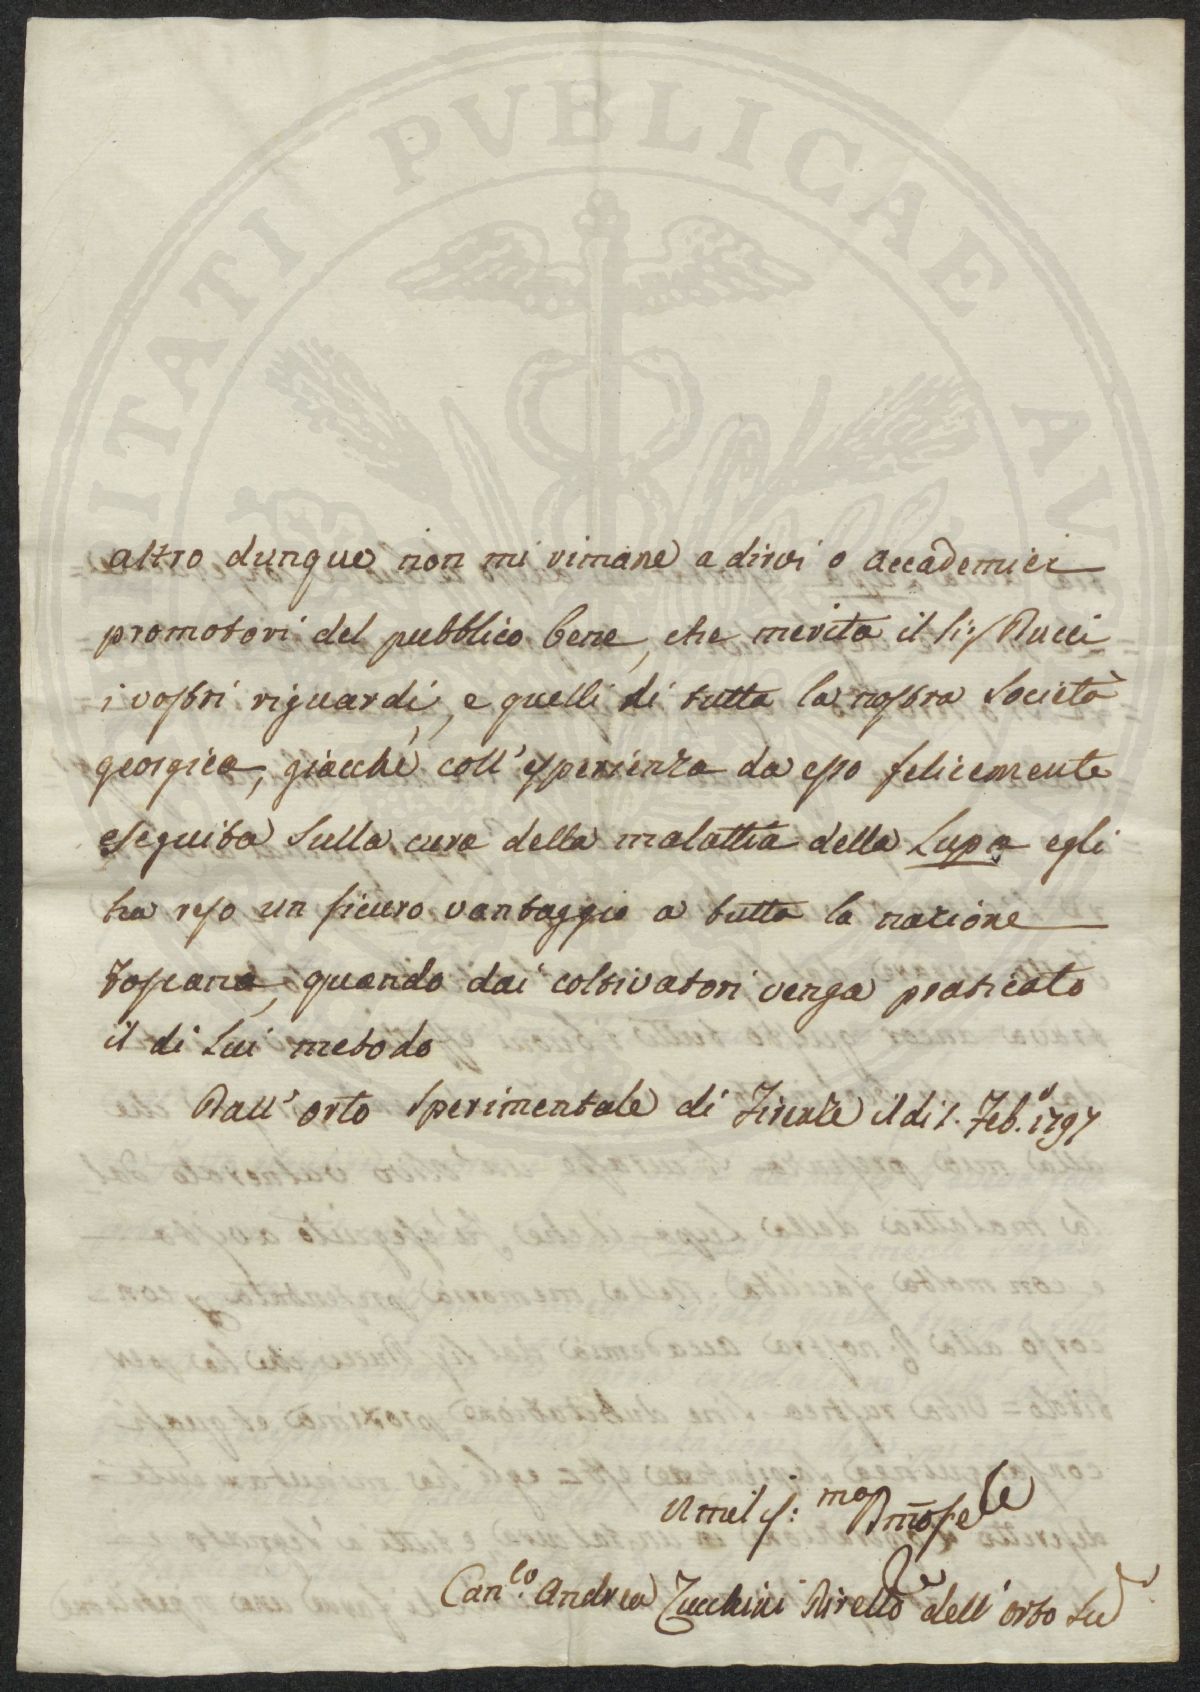 VTILITATI PVBLICAE AV
altro dunque non mi rimane a dirvi o accademici
promotori del pubblico bene, che merita il Sig.r Ducci
i vostri riguardi, e quelli di tutta la nostra Società
georgica, giacchè coll'esperienza da esso felicemente
eseguita sulla cura della malattia della Lupa egli
ha reso un sicuro vantaggio a tutta la nazione
toscana, quando dai coltivatori venga praticato
il di lui metodo
Dall'orto sperimentale di Firenze il dì 1. Feb.o 1797
Umilis:mo
Can.co Andrea Zucchini Dirett.re dell'orto sud.